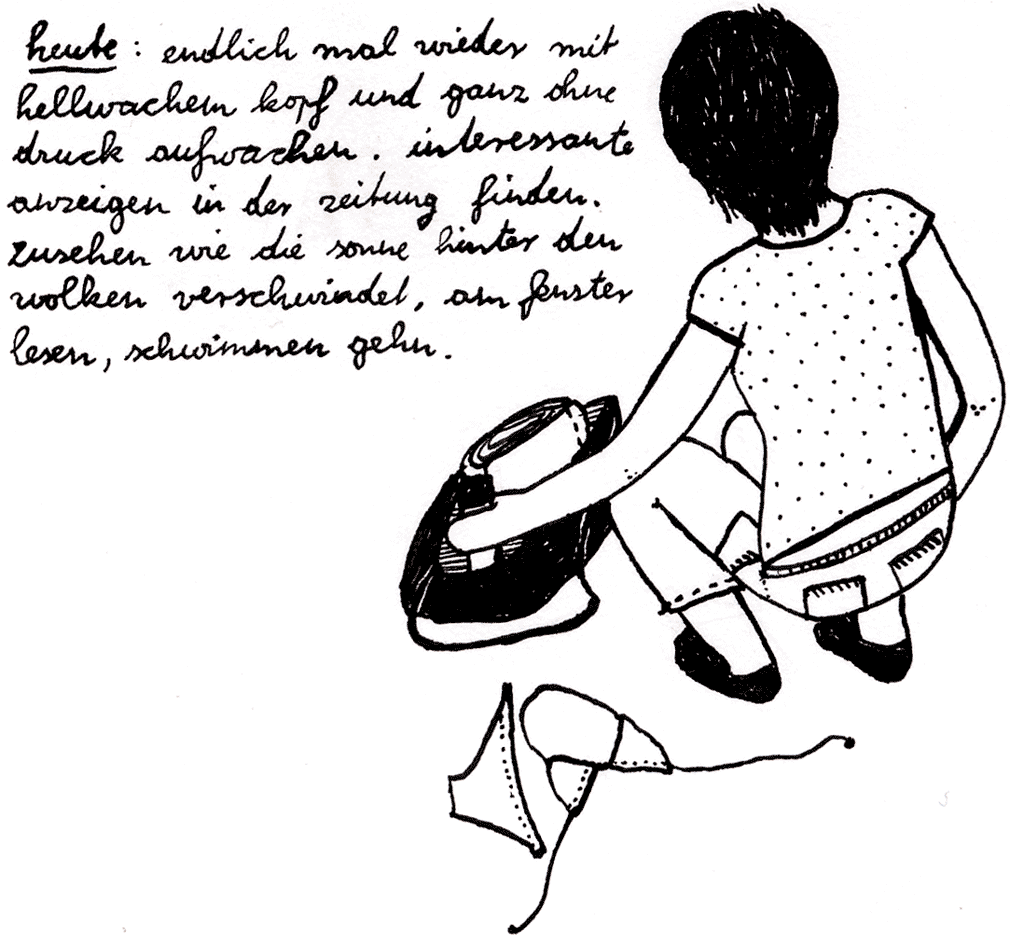 heute: endlich mal wieder mit
hellwachem kopf und ganz ohne
druck aufwachen. interessante
anzeigen in der zeitung finden.
zusehen wie die sonne hinter den
wolken verschwindet, am fenster
lesen, schwimmen gehn.